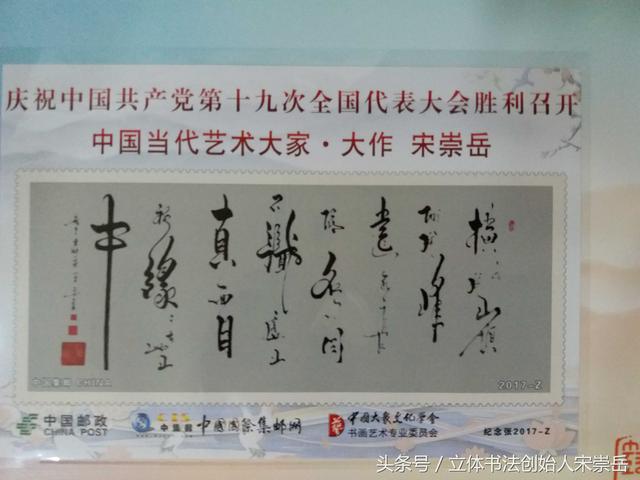 庆祝中国共产党第十九次全国代表大会胜利召开
中国当代艺术大家·大作 宋崇岳
橫看成嶺
側成峰
遠近高
低各不同
不識廬山
真面目
緣身在此山
中
中国集邮 CHINA
2017-Z
中国邮政
CHINA POST
中集网
中国国际集邮网
中国大众文化学会
书画艺术专业委员会
纪念张2017-Z
头条号／立体书法创始人宋崇岳